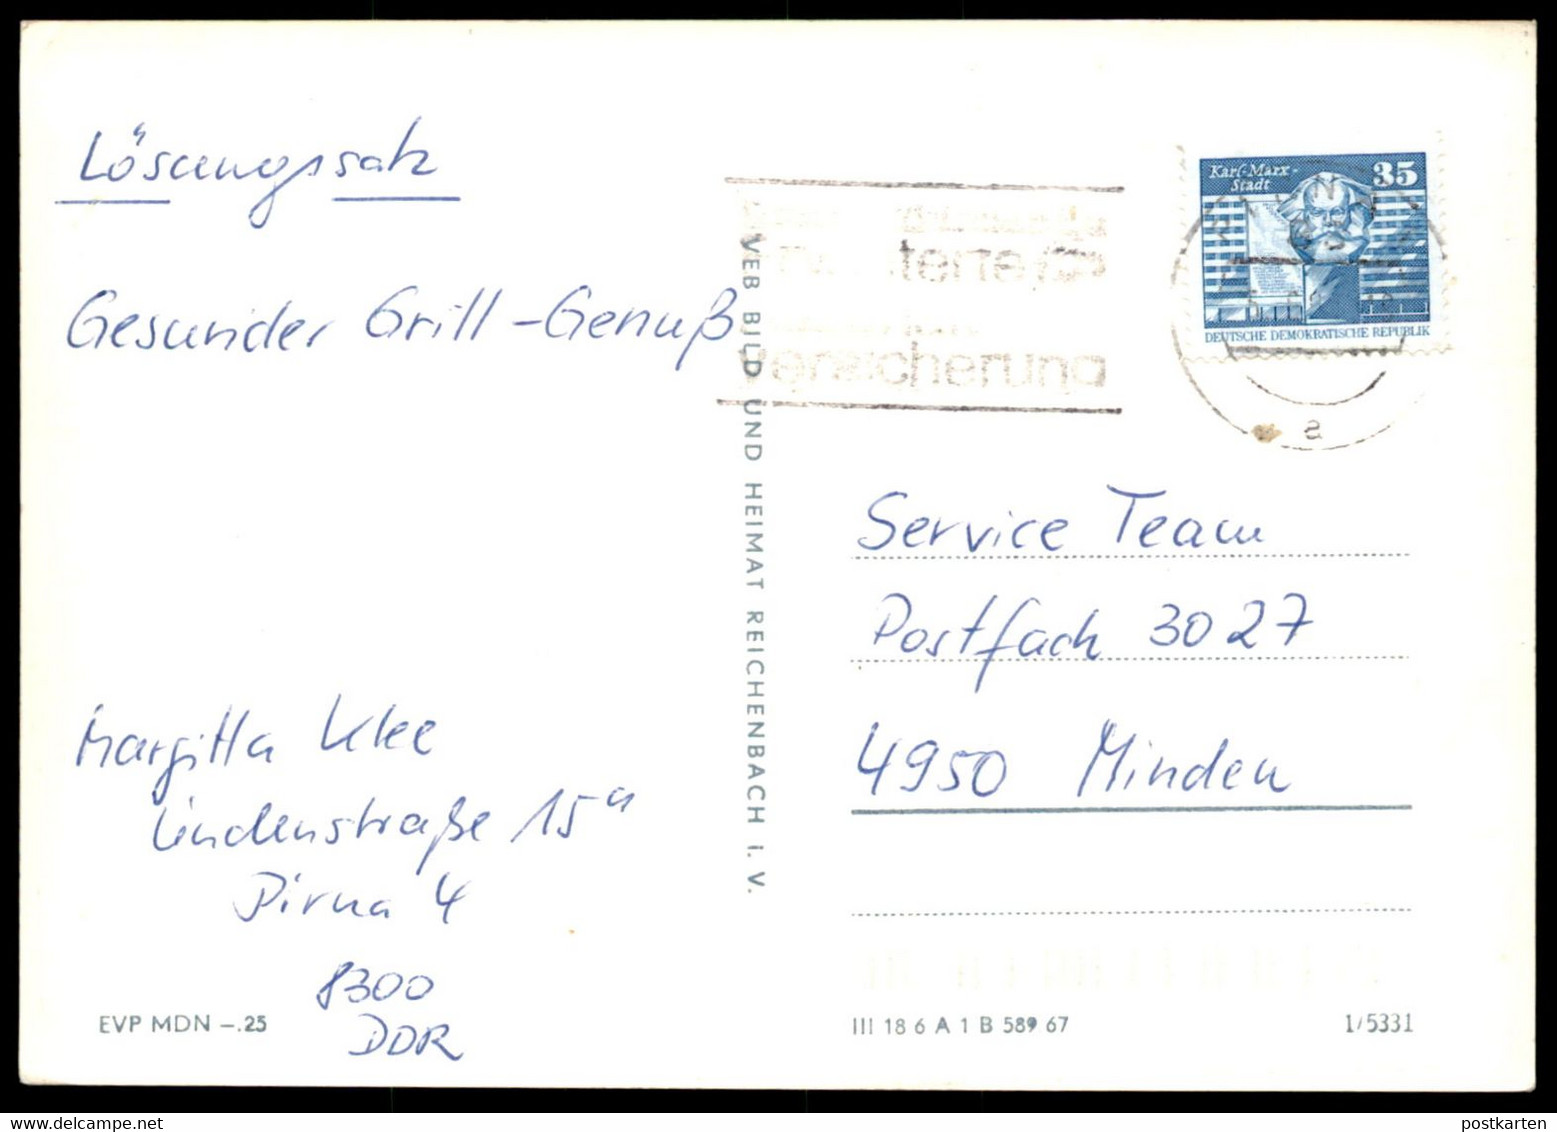 Lösungssatz
Gesunder Grill-Genuß
Margitta Klee
Lindenstraße 15a
Pirna 4
8300
DDR
EVP MDN –.25
VEB BILD UND HEIMAT REICHENBACH i. V.
versicherung
Karl-Marx-
Stadt
35
DEUTSCHE DEMOKRATISCHE REPUBLIK
a
Service Team
Postfach 3027
4950 Minden
III 18 6 A 1 B 589 67
1/5331
postkarten